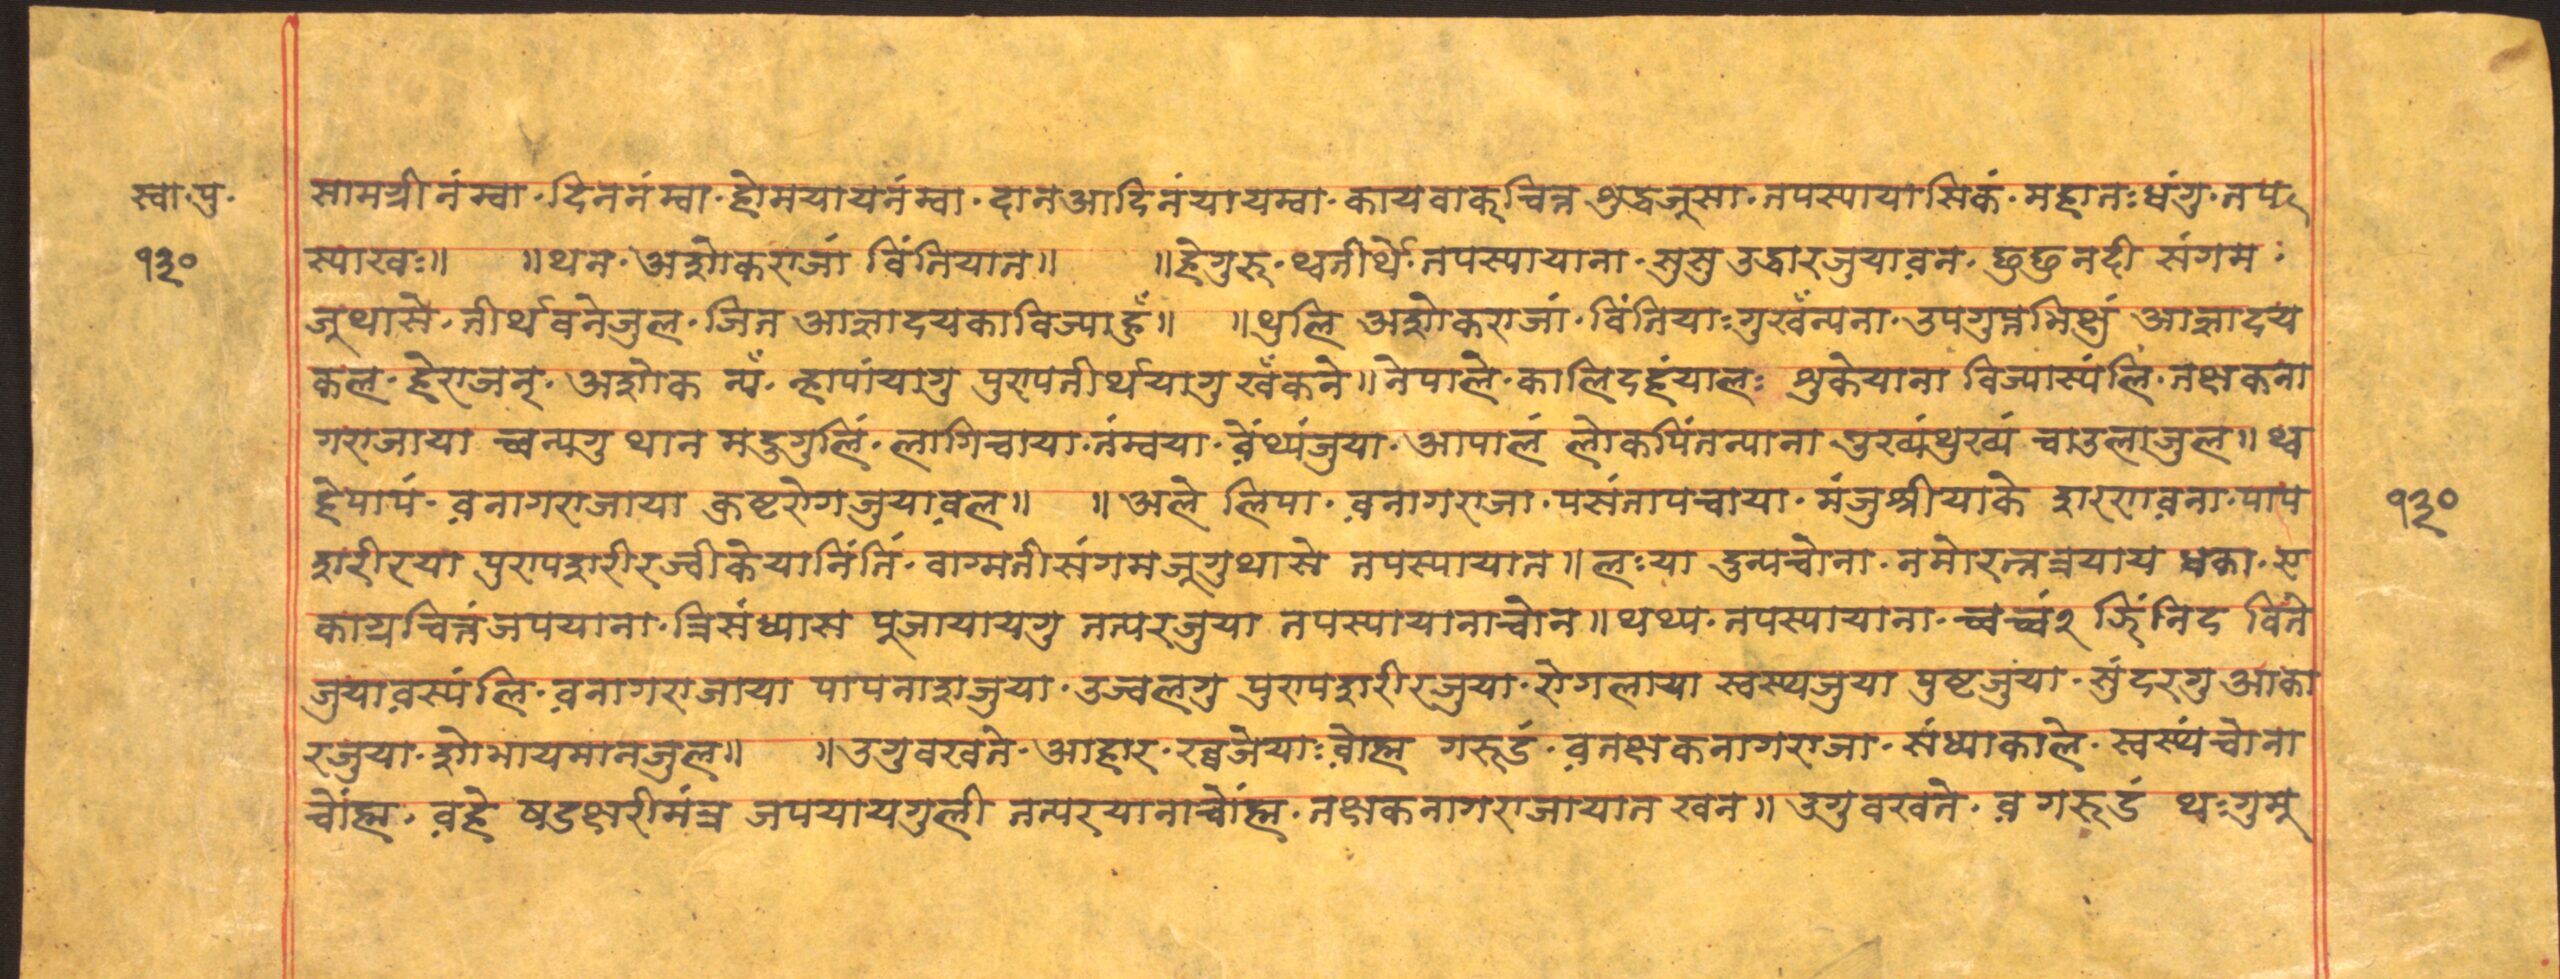 स्वा.पु.
१३०
सामग्रीनंम्वा.दिननंम्वा.होमयायनंम्वा.दानआदिनंयायम्वा.कायवाक्चित्त शुद्धजुसा.तपस्यायासिकं.महातःधंगु.तप
स्याखः॥ ॥थन.अशोकराजां विंतियात॥ ॥हेगुरु.थ्वतीर्थे.तपस्यायाना.सुसु उद्धारजुयावन.छुछु नदी संगम.
जूथासे.तीर्थवनेजुल.जित आज्ञादयकाविज्याहुँ॥ ॥थुलि अशोकराजां.विंतियाःगुखँन्यना.उपगुप्तभिक्षुं आज्ञादय
कल.हेराजन्.अशोक न्यँ.न्हापांयागु पुरापतीर्थयागु खँकने॥नेपाले.कालिदहंयालः शुकेयाना विज्यास्यंलि.तक्षकना
गराजाया च्वन्यगु थान मदुगुलिं.लागिचाया.तंम्वया.वेँथ्यंजुया.आपालं लोकपिंतन्याना थुखय्यंथुखय्यं चाउलाजुल॥थ्व
हेपापं.वनागराजाया क्रष्टरोगजुयावल॥ ॥अले लिपा.वनागराजा.पसंतापचाया.मंजुश्रीयाके शरणवना.पाप
शरीरया पुरापशरीरज्वीकेयानिंतिं.वाग्मतीसंगमजूगुथासे तपस्यायात॥लःया दुन्यचोना.नमोरत्नत्रयाय धका.ए
काग्रचित्तंजपयाना.त्रिसंध्यास पूजायायगु तत्परजुया तपस्यायानाचोन॥थथ्य.तपस्यायाना.च्वच्वं२ झिंनिद विते
जुयावस्यंलि.वनागराजाया पापनाशजुया.उज्वलगु पुरापशरीरजुया.रोगलाया स्वस्थजुया पुष्टजुया.सुंदरगु आका
रजुया.शोभायमानजुल॥ ॥उगुवखते.आहार.रव्वजेयाःवोह्म गरूडं.वतक्षकनागराजा.संध्याकाले.स्वस्थंचोना
चोंह्म.वहे षडक्षरीमंत्र जपयायगुली तत्परयानाचोंह्म.तक्षकनागराजायात खन॥उगुवखते.व गरूडं थःगुमू
१३०